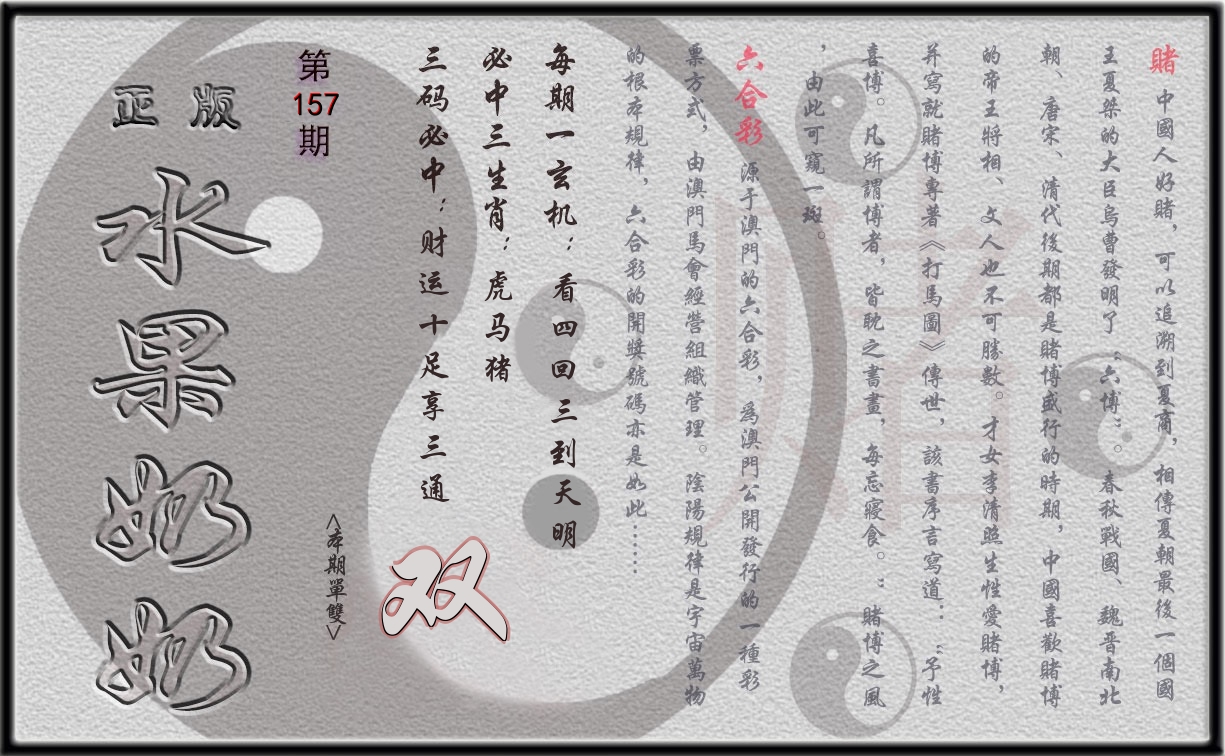 賭 中國人好賭，可以追溯到夏商，相傳夏朝最後一個國
王夏桀的大臣烏曹發明了“六博”。春秋戰國、魏晉南北
朝、唐宋、清代後期都是賭博盛行的時期，中國喜歡賭博
的帝王將相、文人也不可勝數。才女李清照生性愛賭博，
并寫就賭博專著《打馬圖》傳世，該書序言寫道：“予性
喜博。凡所謂博者，皆耽之晝畫，每忘寢食。”賭博之風
，由此可窺一斑。
六合彩 源于澳門的六合彩，為澳門公開發行的一種彩
票方式，由澳門馬會經營組織管理。陰陽規律是宇宙萬物
的根本規律，六合彩的開獎號碼亦是如此……
每期一玄机：看四回三到天明
必中三生肖：虎马猪
三码必中：财运十足享三通
<本期單雙>
双
第
157
期
正版
水果奶奶
賭